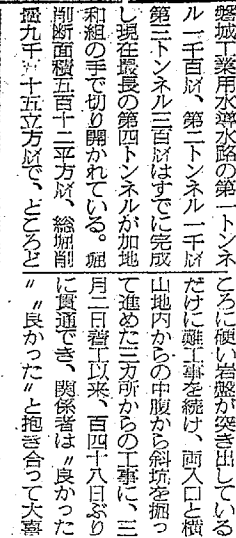 磐城工業用水導水路の第一トンネ
ル一千百㍍、第二トンネル一千㍍
第三トンネル三百㍍はすでに完成
し現在最長の第四トンネルが加地
和組の手で切り開かれている。掘
削断面積五百十二平方㍍、総堀削
量九千六十五立方㍍で、ところど
ころに硬い岩盤が突き出している
だけに難工事を続け、両入口と横
山地内からの中腹から斜坑を掘っ
て進めた三方所からの工事に、三
月二日着工以来、百四十八日ぶり
に貫通でき、関係者は〃良かった
〃〃良かった〃と抱き合って大喜